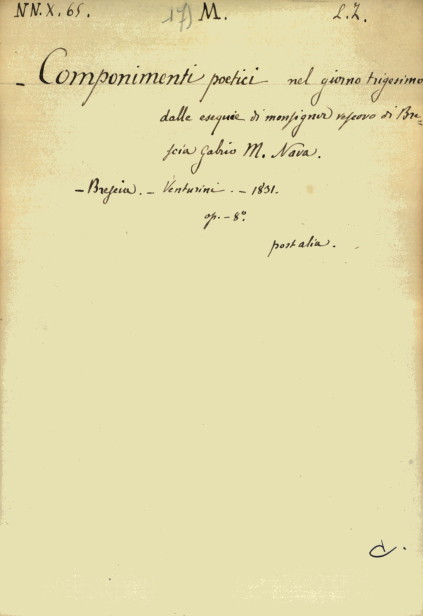 NN.X.65. 17) M. L.Z.
- Componimenti poetici nel giorno trigesimo
dalle esequie di monsignor vescovo di Bre=
scia Gabrio M. Nava.
- Brescia. - Venturini. - 1831.
op. - 8.º
post alia.